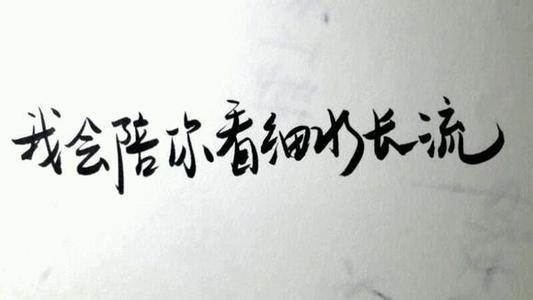 我会陪你看细水长流